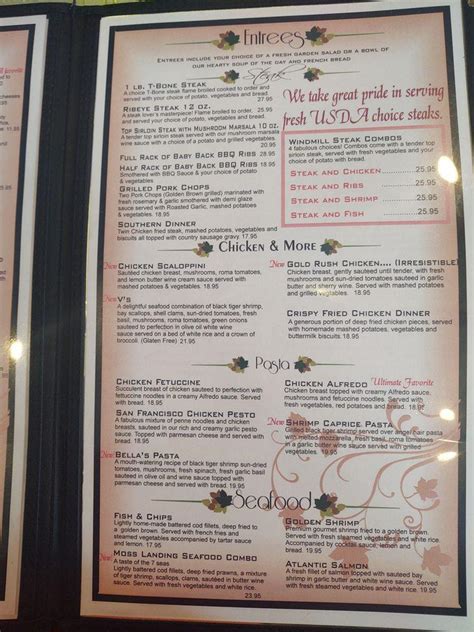 Entrees
Entrees include your choice of a fresh garden salad or a bowl of
our hearty soup of the day and french bread
Steak
1 lb. T-Bone Steak
A choice T-Bone steak flame broiled cooked to order and
served with your choice of potato, vegetables and bread.
27.95
Ribeye Steak 12 oz.
A steak lover's masterpiece! Flame broiled to order, and
served with your choice of potato, vegetables and bread.
Top Sirloin Steak with Mushroom Marsala 10 oz.
A tender top sirloin steak served with our mushroom marsala
wine sauce with a choice of potato and grilled vegetables.
Full Rack of Baby Back BBQ Ribs 28.95
Half Rack of Baby Back BBQ Ribs
Smothered with BBQ Sauce & your choice of potato
& vegetables
Grilled Pork Chops
Two Pork Chops (Golden Brown grilled) marinated with
fresh rosemary & garlic smothered with demi glaze
sauce served with Roasted Garlic, mashed potatoes
& vegetables.
Southern Dinner
Twin Chicken fried steak, mashed potatoes, vegetables and
biscuits all topped with country sausage gravy.
We take great pride in serving
fresh USDA choice steaks.
Windmill Steak Combos
4 fabulous choices! Combos come with a tender top
sirloin steak, served with fresh vegetables and your
choice of potato with bread.
Steak and Chicken 25.95
Steak and Ribs 25.95
Steak and Shrimp 25.95
Steak and Fish 25.95
Chicken & More
New Chicken Scaloppini
Sautéed chicken breast, mushrooms, roma tomatoes,
and lemon butter wine cream sauce served with
mashed potatoes & vegetables. 18.95
New V's
A delightful seafood combination of black tiger shrimp,
bay scallops, shell clams, sun-dried tomatoes, fresh
basil, mushrooms, roma tomatoes, green onions
sauteed to perfection in olive oil white wine
sauce served on a bed of white rice and a crown of
broccoli. (Gluten Free) 21.95
New Gold Rush Chicken.... (Irresistible)
Chicken breast, gently sauteed until tender, with fresh
mushrooms and sun-dried tomatoes sauteed in garlic
butter and sherry wine. Served with mashed potatoes
and grilled vegtables. 18.95
Crispy Fried Chicken Dinner
A generous portion of deep fried chicken pieces, served
with homemade mashed potatoes, vegetables and
buttermilk biscuits. 18.95
Pasta
Chicken Fetuccine
Succulent breast of chicken sauteed to perfection with
fettuccine noodles in a creamy Alfredo sauce. Served
with bread. 18.95
San Francisco Chicken Pesto
A fabulous mixture of penne noodles and chicken
breasts, sautéed in our rich and creamy garlic pesto
sauce. Topped with parmesan cheese and served with
bread. 19.95
New Bella's Pasta
A mouth-watering recipe of black tiger shrimp sun-dried
tomatoes, mushrooms, fresh spinach, fresh garlic basil
sauteed in olive oil and wine sauce topped with
parmesan cheese and served with
bread. 19.95
Chicken Alfredo Ultimate Favorite
Chicken breast, sauteed with fresh vegetables,
mushrooms and fettuccine noodles. Served with our
creamy Alfredo sauce. Served with
fresh vegetables, red potatoes and bread. 18.95
New Shrimp Caprice Pasta
Grilled black tiger shrimp served over angel hair pasta
with melted mozzarella, fresh basil, roma tomatoes
in a white wine garlic sauce. Served with
bread. 18.95
Seafood
Fish & Chips
Lightly home-made battered cod fillets, deep fried to
a golden brown. Served with french fries and
steamed vegetables accompanied by tartar sauce
and lemon. 17.95
New Moss Landing Seafood Combo
A taste of the 7 seas
Lightly battered cod fillets, deep fried prawns, a mixture
of tiger shrimp, scallops, clams, sauteed in butter wine
sauce. Served with fresh steamed vegetables and
white rice.
23.95
Golden Shrimp
Premium gourmet shrimp fried to a golden brown
Served with fresh steamed vegetables and white rice
Accompanied by cocktail sauce, and lemon
19.95
Atlantic Salmon
A fresh fillet of salmon topped with sauteed bay
shrimp in garlic butter and white wine sauce. Served
with fresh steamed vegetables and white rice. 19.95